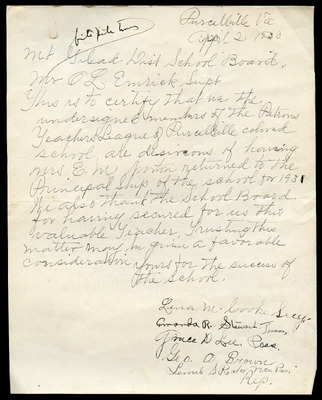 Purcellville Va
April 2 1930
Mt Gilead Dist School Board.
Mr O L Emrick, Supt
This is to certify that we the
undersigned members of the Patrons
Teachers League of Purcellville colored
school, are desirous of having
Mrs. E. M. returned to the
Principal ship of the school for 1931
We also thank the School Board
for having secured for us this
valuable Teacher, Trusting this
matter may be given a favorable
consideration yours for the success of
the School.
Lena M. Cooke Secy.
Amanda R. Stewart Treas
Grace D Lee Pres
Geo. A. Brown
Rep.